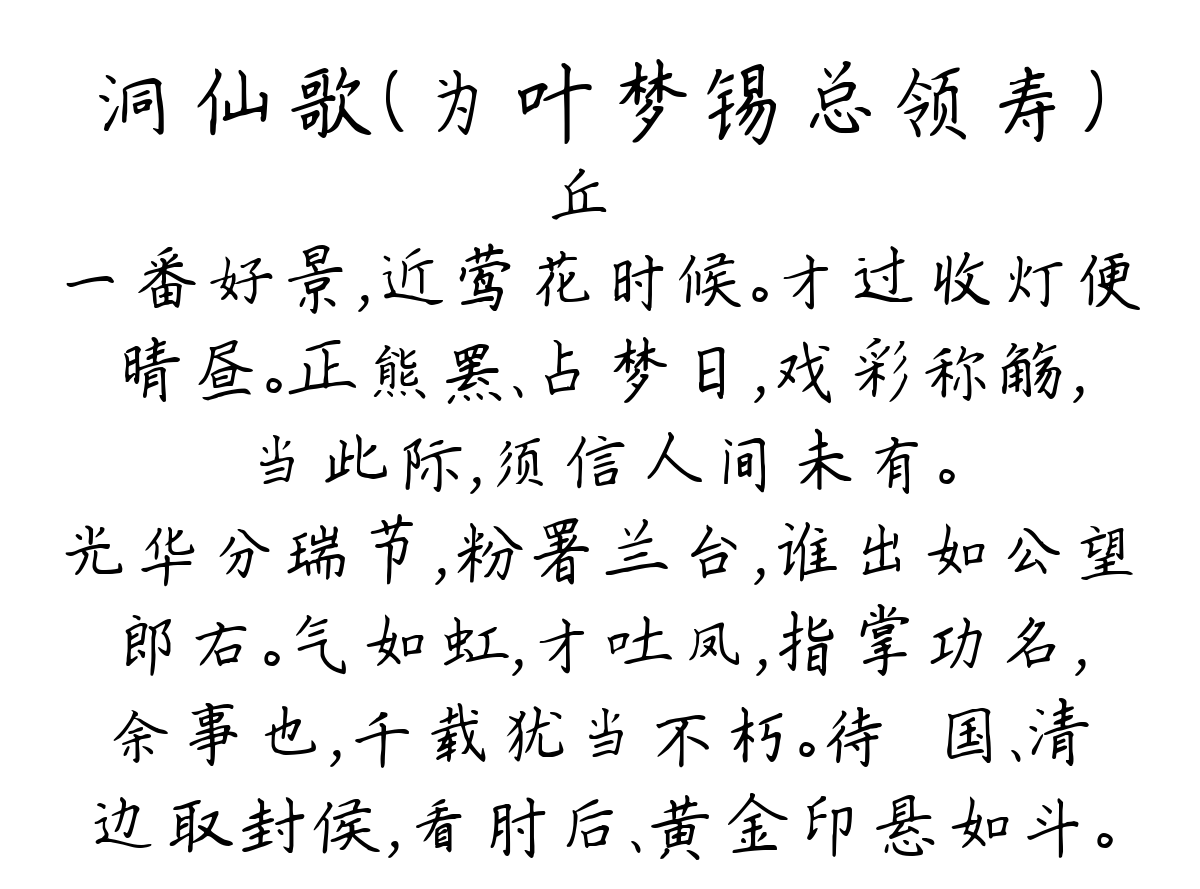 洞仙歌(为叶梦锡总领寿)
丘
一番好景,近莺花时候。才过收灯便
晴昼。正熊罴、占梦日,戏彩称觞,
当此际,须信人间未有。
光华分瑞节,粉署兰台,谁出如公望
郎右。气如虹,才吐凤,指掌功名,
余事也,千载犹当不朽。待 国、清
边取封侯,看肘后、黄金印悬如斗。